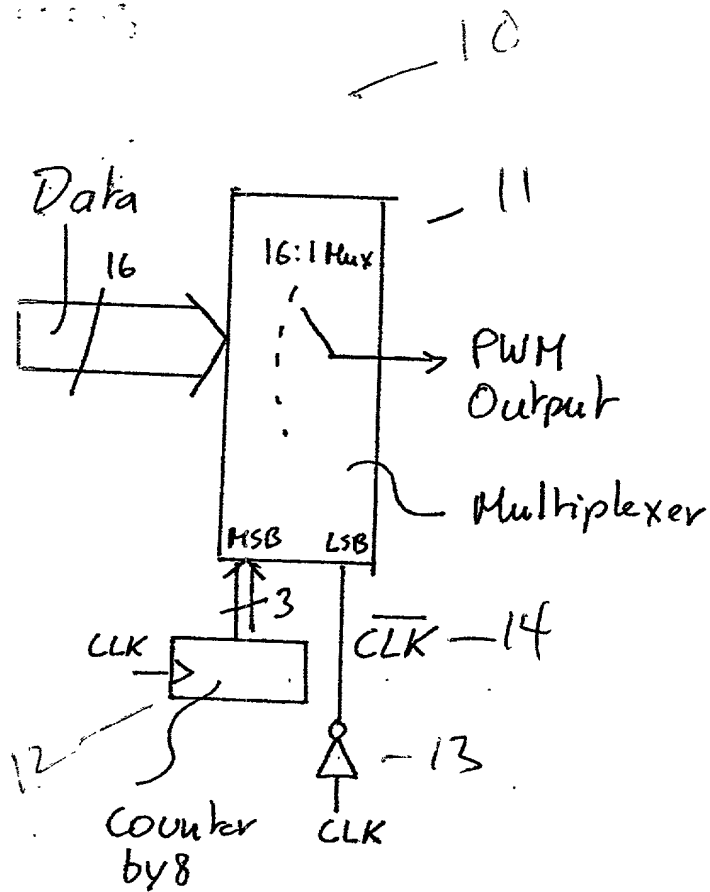 10
Data
11
16
16:1 Mux
PWM
Output
Multiplexer
MSB LSB
3
CLK
C̅L̅K̅ — 14
12
13
Counter
by 8
CLK